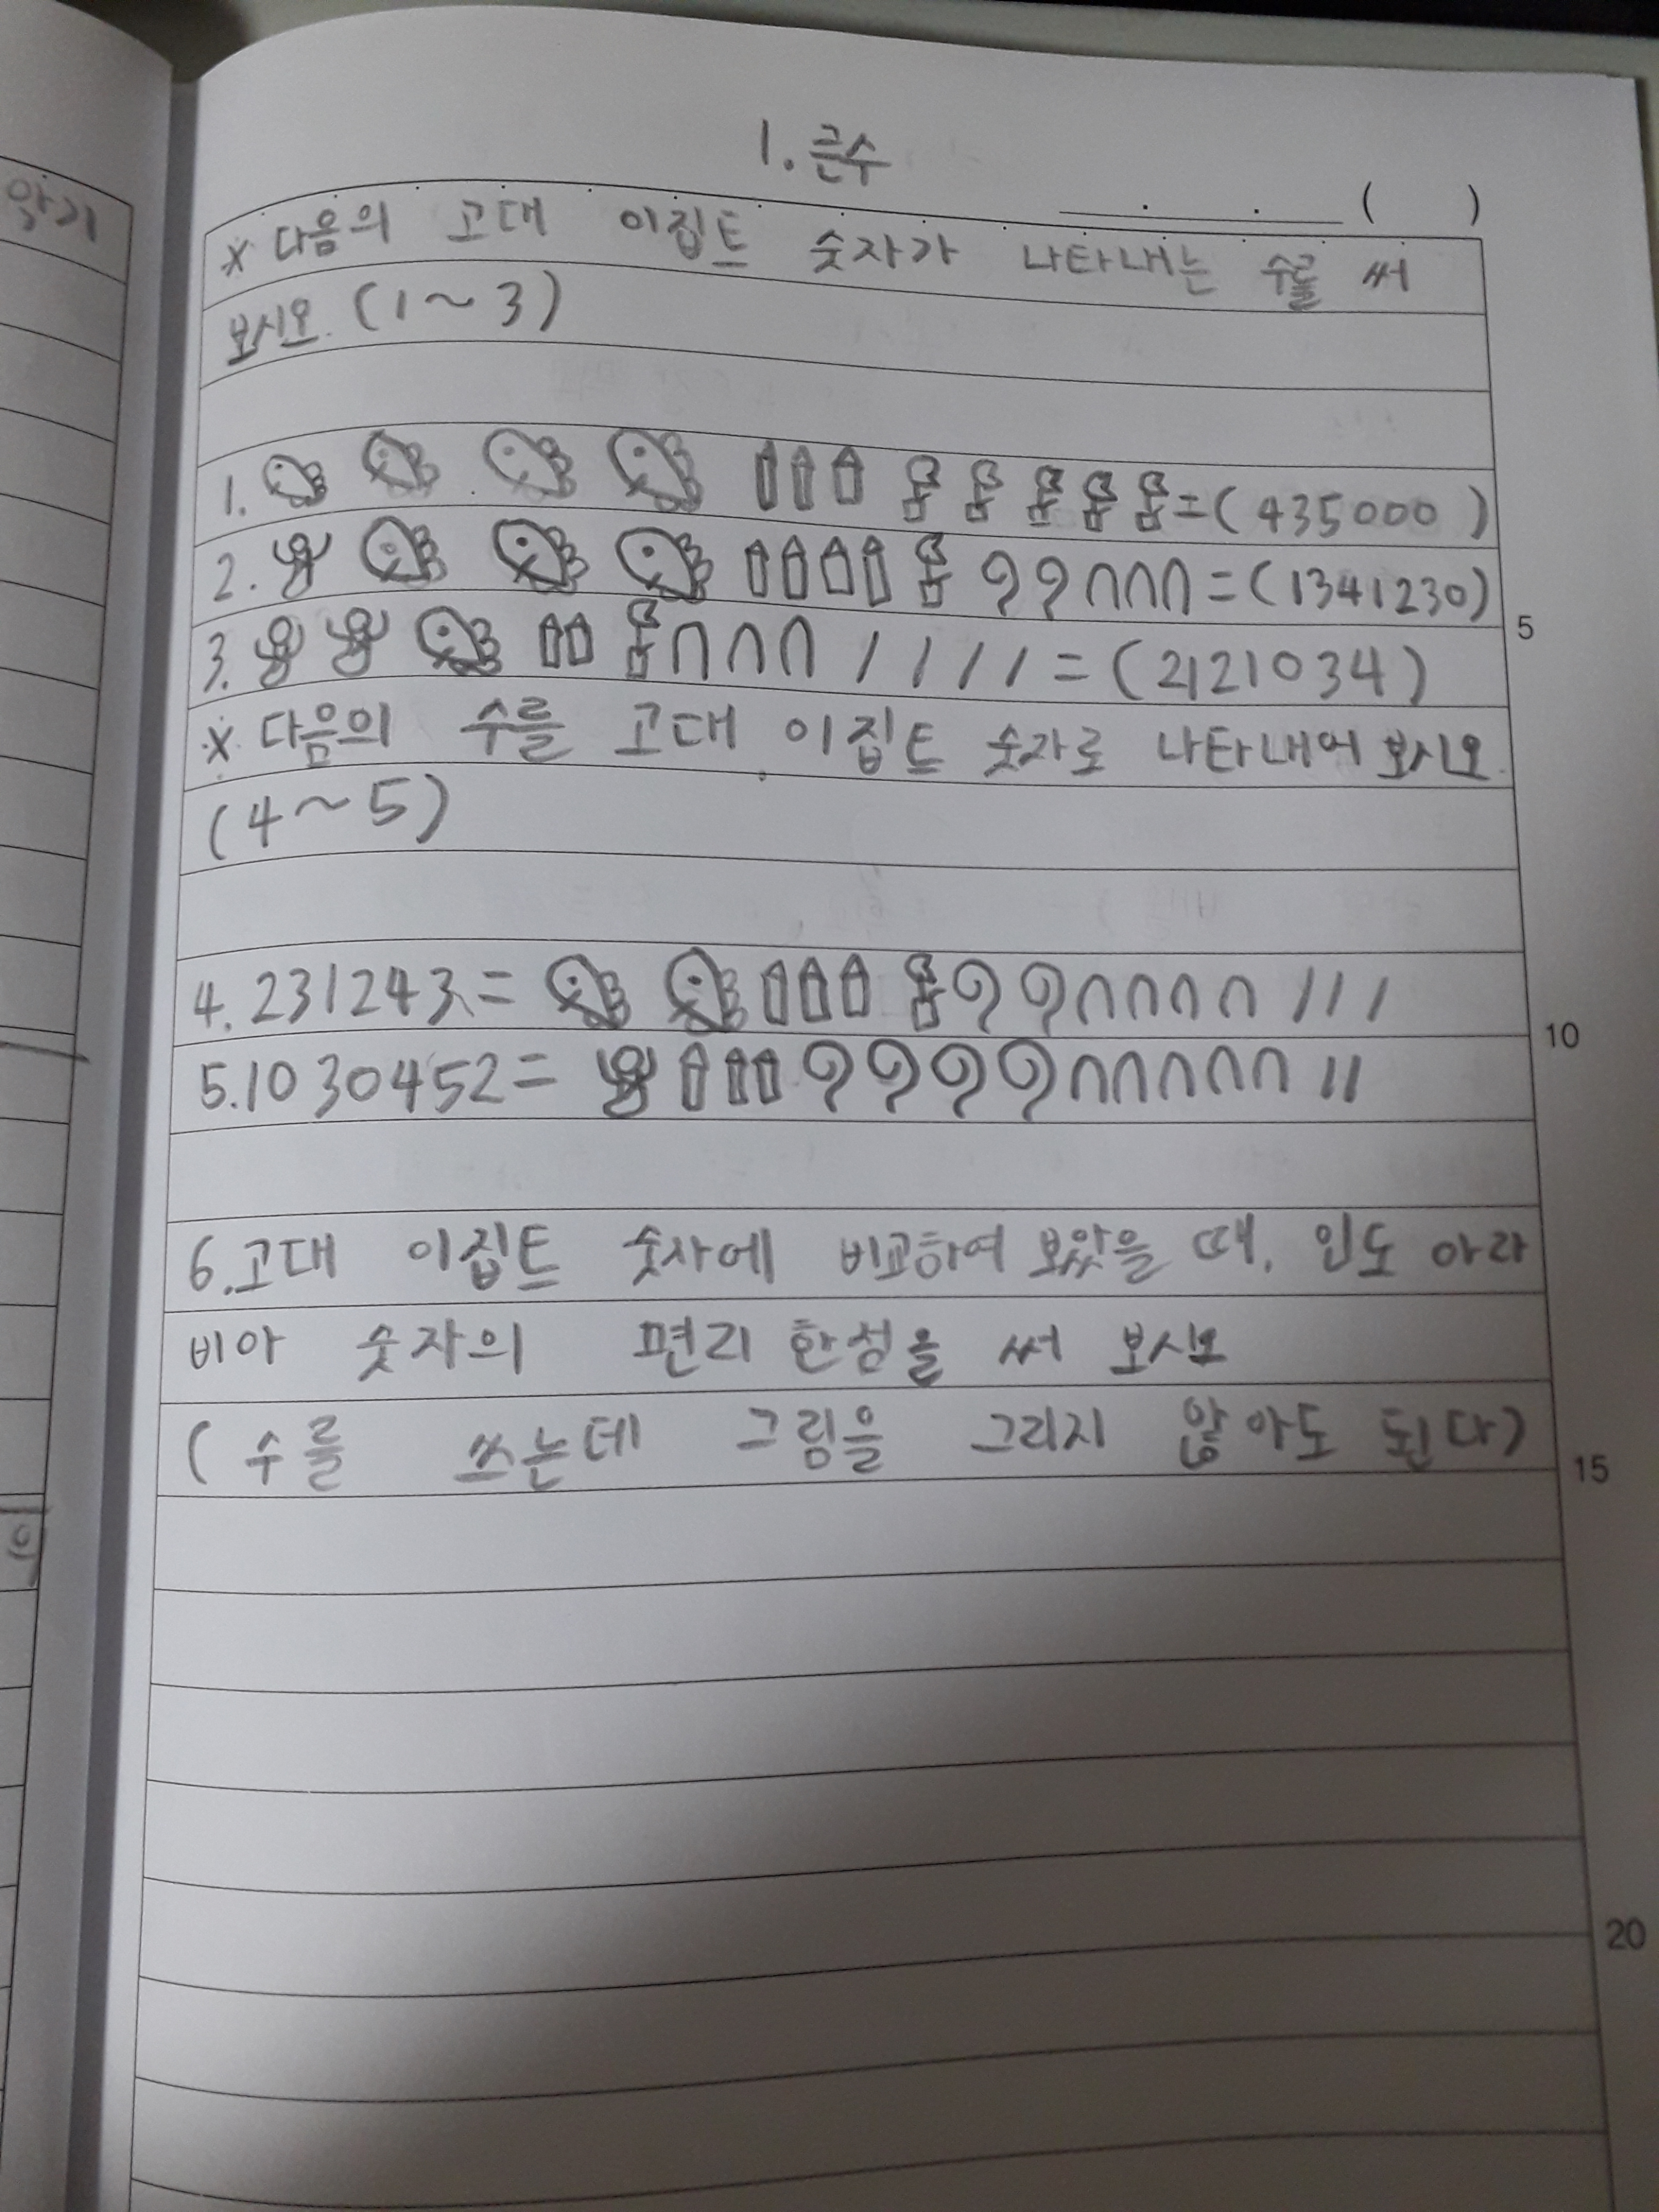 1. 큰수
( )
※ 다음의 고대 이집트 숫자가 나타내는 수를 써
보시오. (1~3)
1. =(435000)
2. =(1341230)
5
3. =(2121034)
※ 다음의 수를 고대 이집트 숫자로 나타내어 보시오.
(4~5)
4. 231243=
10
5. 1030452=
6. 고대 이집트 숫자에 비교하여 보았을 때, 인도 아라
비아 숫자의 편리한점을 써 보시오
(수를 쓰는데 그림을 그리지 않아도 된다)
15
20